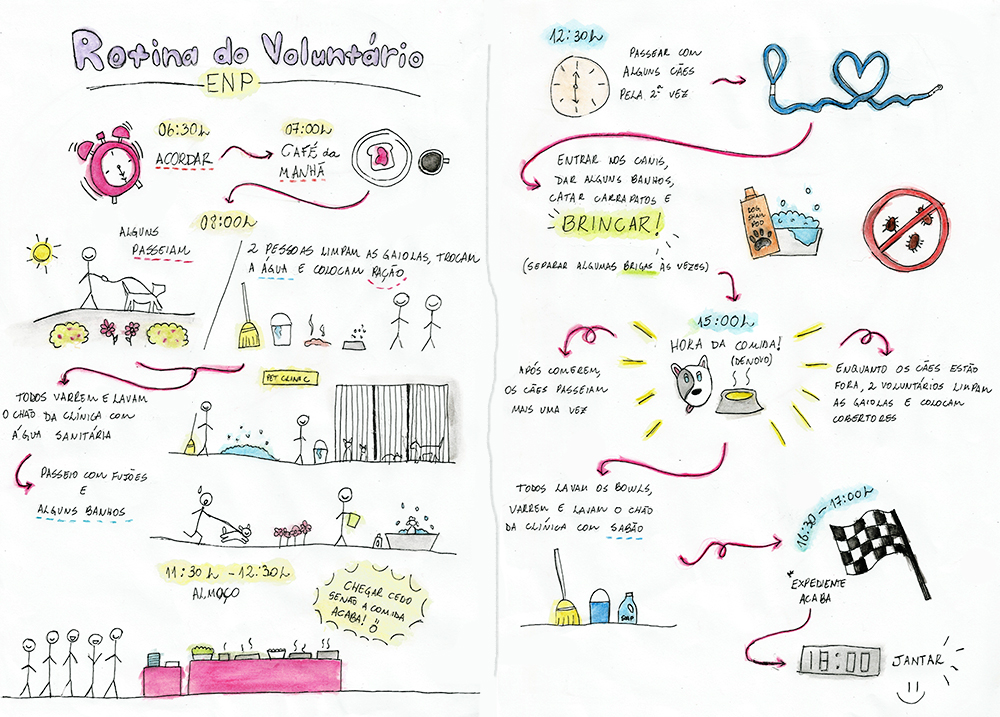 Rotina do Voluntário
ENP
06:30h
ACORDAR
07:00h
CAFÉ da
MANHÃ
08:00h
ALGUNS
PASSEIAM
2 PESSOAS LIMPAM AS GAIOLAS, TROCAM
A ÁGUA E COLOCAM RAÇÃO
PET CLINIC
TODOS VARREM E LAVAM
O CHÃO DA CLÍNICA COM
ÁGUA SANITÁRIA
PASSEIO COM FUJÕES
E
ALGUNS BANHOS
11:30h - 12:30h
ALMOÇO
CHEGAR CEDO
SENÃO A COMIDA
ACABA! Ö
12:30h
PASSEAR COM
ALGUNS CÃES
PELA 2ª VEZ
ENTRAR NOS CANIS,
DAR ALGUNS BANHOS,
CATAR CARRAPATOS E
BRINCAR!
DOG
SHAM
POO
(SEPARAR ALGUMAS BRIGAS ÀS VEZES)
15:00h
HORA DA COMIDA!
(DENOVO)
APÓS COMEREM,
OS CÃES PASSEIAM
MAIS UMA VEZ
ENQUANTO OS CÃES ESTÃO
FORA, 2 VOLUNTÁRIOS LIMPAM
AS GAIOLAS E COLOCAM
COBERTORES
TODOS LAVAM OS BOWLS,
VARREM E LAVAM O CHÃO
DA CLÍNICA COM SABÃO
SOAP
16:30 - 17:00h
EXPEDIENTE
ACABA
18:00
JANTAR